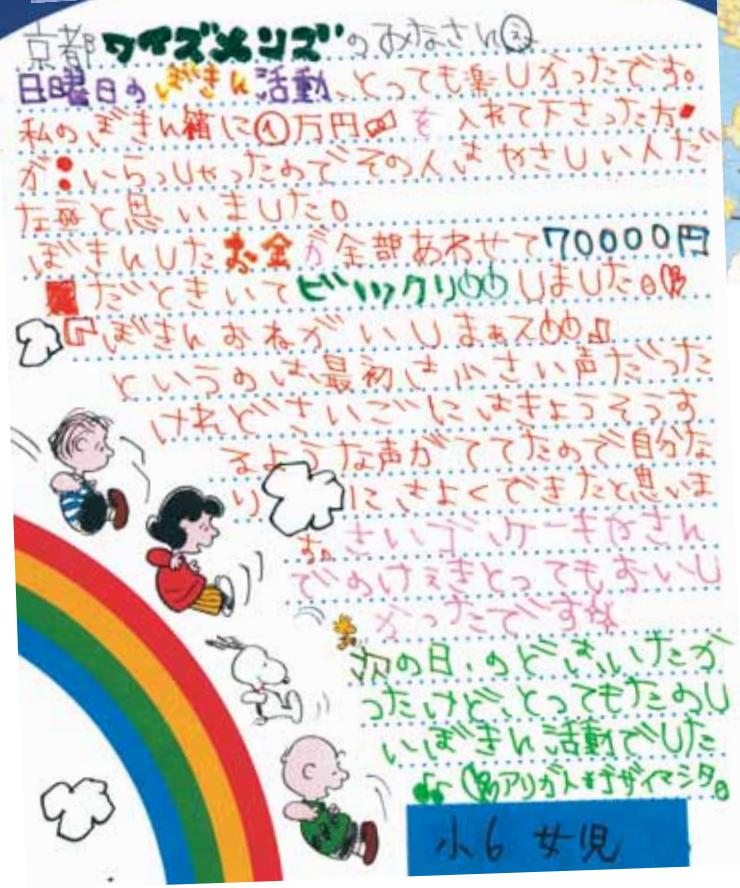 京都ワイズメンズのみなさんへ
日曜日のぼきん活動、とっても楽しかったです。
私のぼきん箱に①万円を入れて下さった方
が!いらっしゃったのでその人はやさしい人だ
なぁと思いました。
ぼきんしたお金が全部あわせて70000円
だときいてビックリしました。
「ぼきんおねがいしまぁス♫
というのは、最初は小さい声だった
けれどさいごにはきょうそうす
るような声がでてたので自分な
りにきよくできたと思いま
す。さいゴ、ケーキやさん
でのけえきとってもおいし
かったです
次の日、のどはいたか
ったけど、とってもたのし
いぼきん活動でした
アリガトオゴザイマシタ。
小6 女児